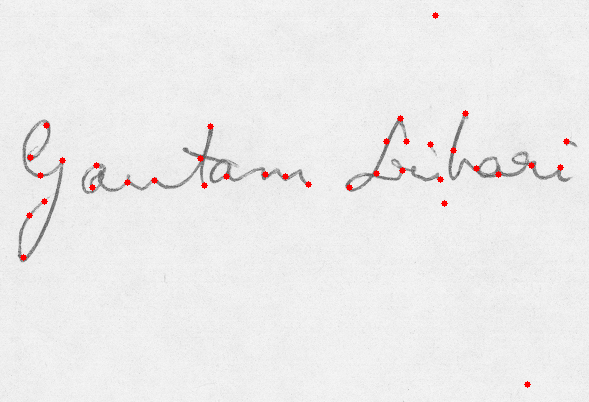 Gautam Lihari